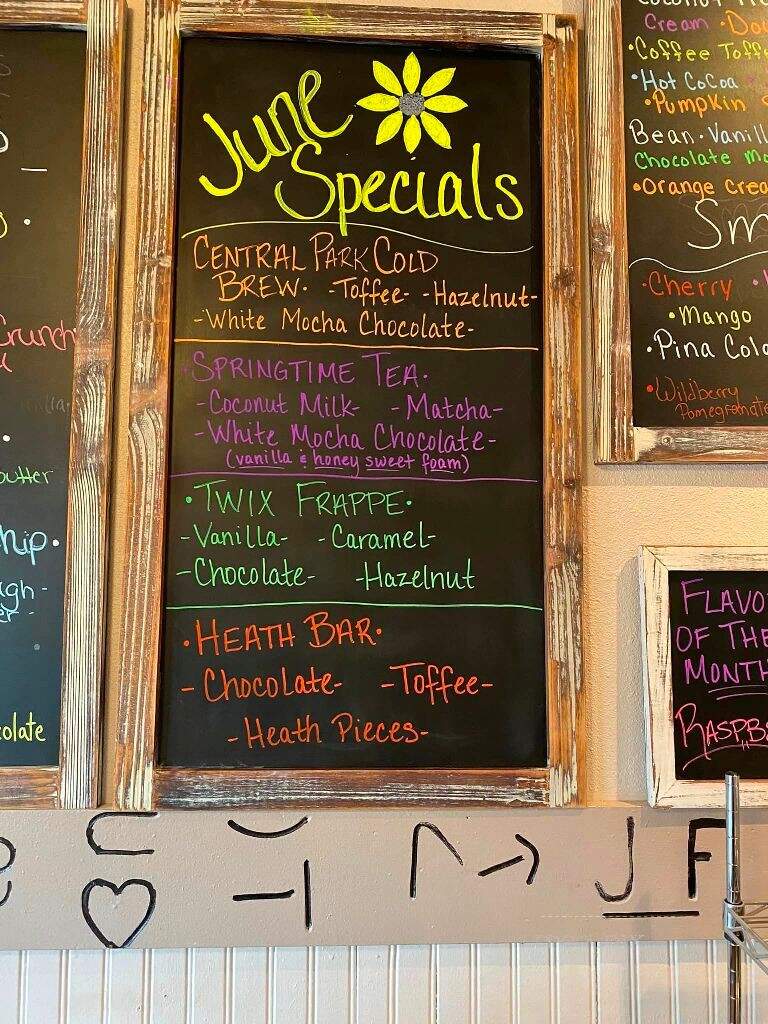 June
Specials
CENTRAL PARK COLD
BREW· -Toffee- -Hazelnut-
-White Mocha Chocolate-
·SPRINGTIME TEA·
-Coconut Milk- -Matcha-
-White Mocha Chocolate-
(vanilla & honey sweet foam)
·TWIX FRAPPE·
-Vanilla- -Caramel-
-Chocolate- -Hazelnut
·HEATH BAR·
-Chocolate- -Toffee-
-Heath Pieces-
Crunch
Cream ·
·Coffee Toffe
·Hot Cocoa
·Pumpkin
Bean·Vanill
Chocolate
·Orange Crea
Sm
·Cherry
·Mango
·Pina Cola
·Wildberry
Pomegranate
FLAVO
OF THE
MONTH
RASPB
J F